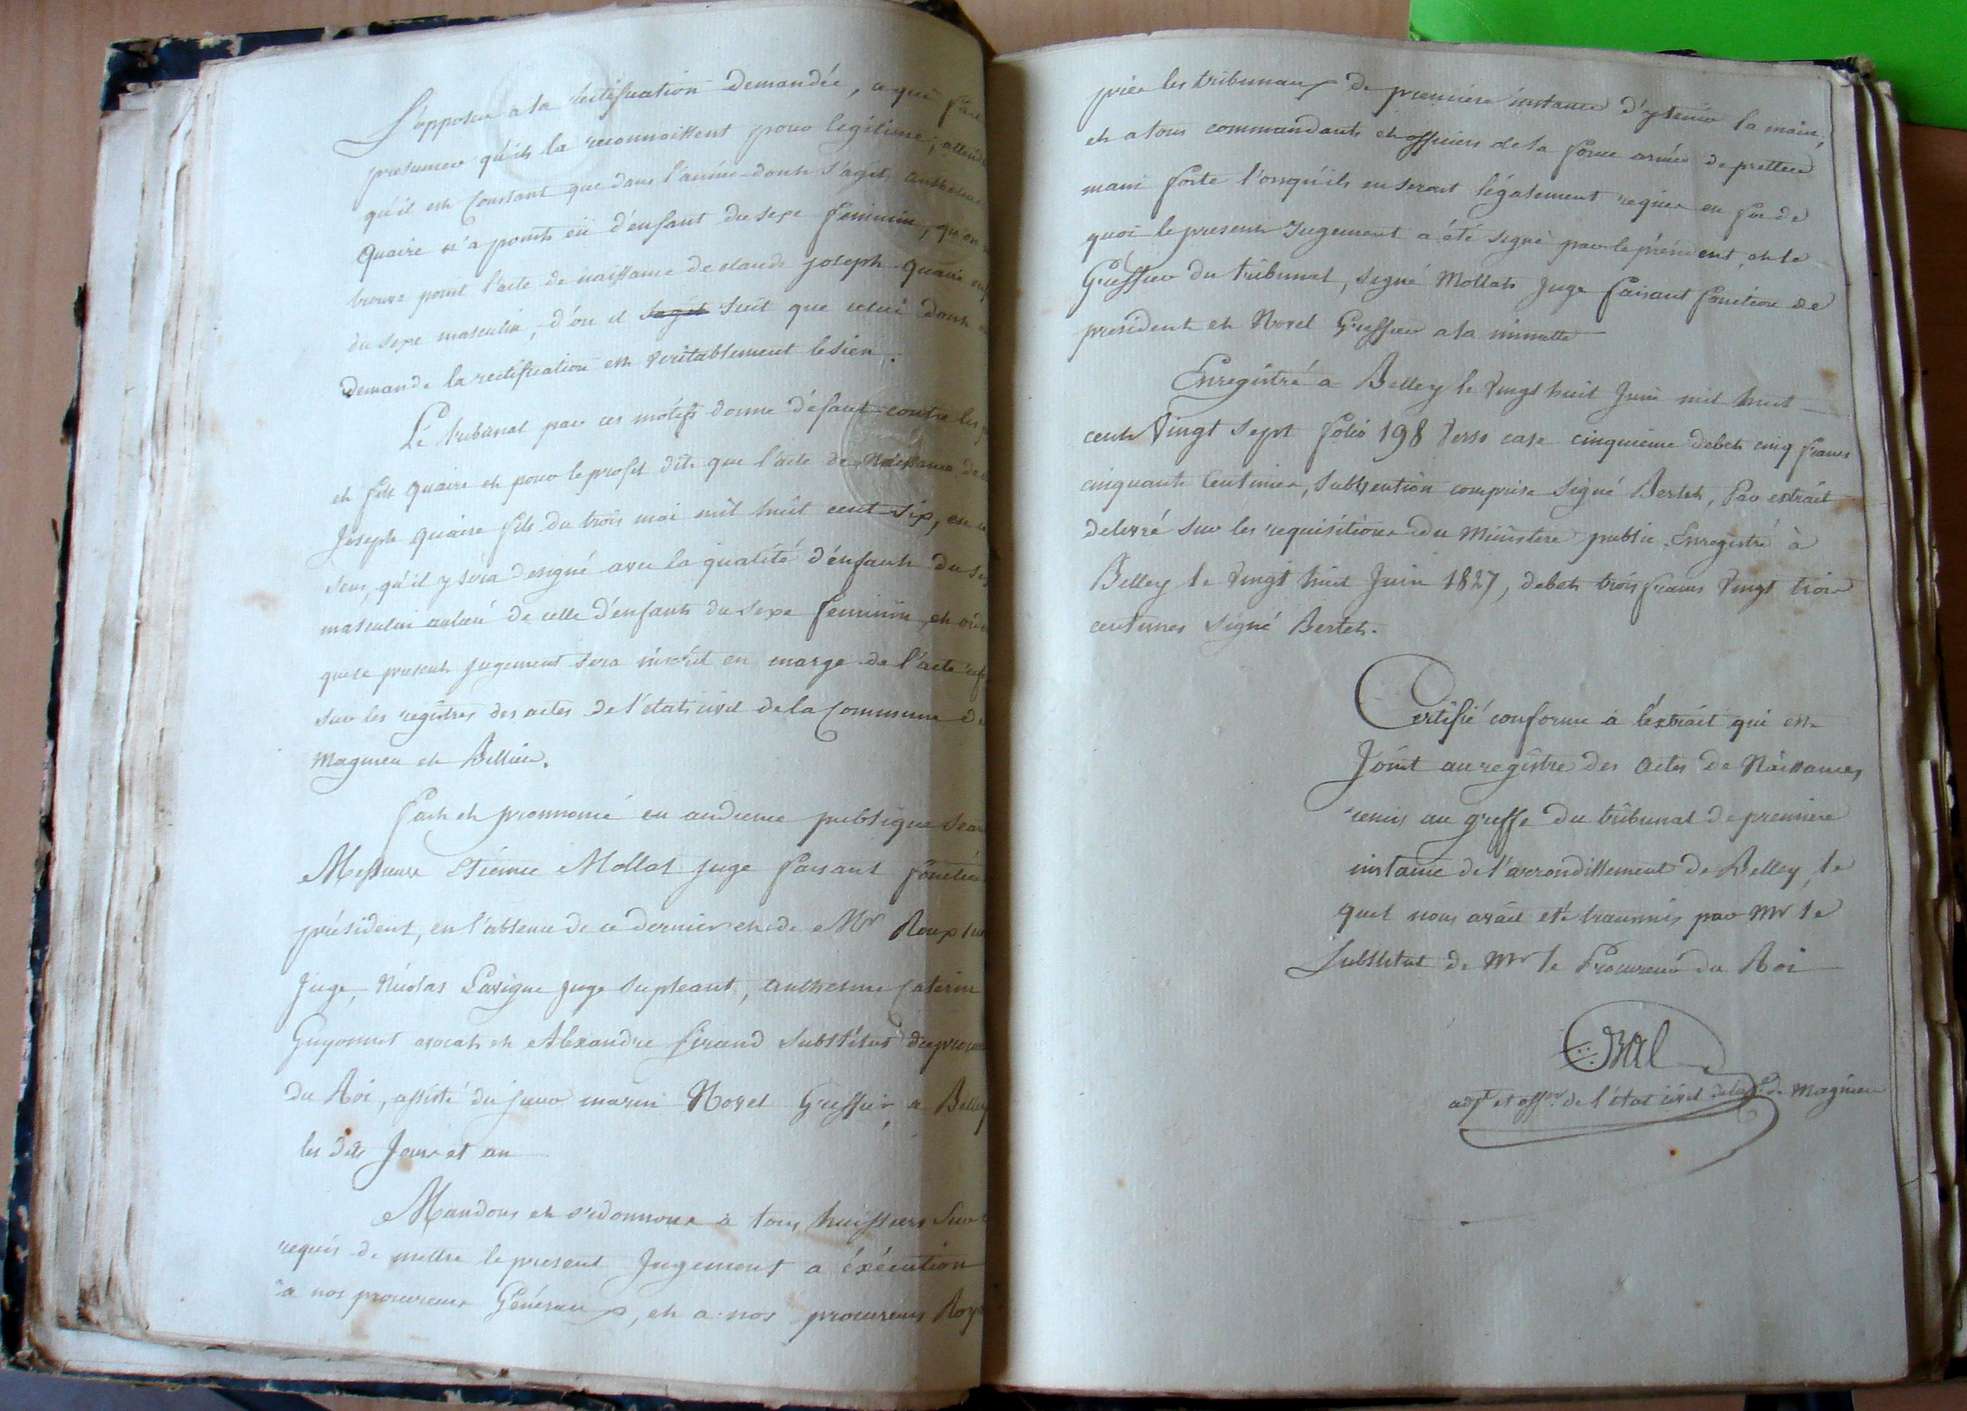 S'opposer a la rectification demandée, a qui fait
presumer qu'ils la reconnoissent pour legitime; attendu
qu'il est Constant que dans l'année dont s'agit Anthelme
Quaire n'a point eü d'enfant du sexe feminin, qu'on ne
trouve point l'acte de naissance de claude joseph Quaire
du sexe masculin, d'ou il sagit suit que celui dont
demande la rectification est veritablement le sien.
Le tribunal par ces motifs donne défaut contre les
et fille Quaire et pour le profit dit que l'acte de Naissance de
Joseph Quaire fils du trois mai mil huit cent six, en ce
sens, qu'il y sera designé avec la qualité d'enfant du sexe
masculin aulieu de celle d'enfant du sexe feminin, et
que ce present jugement sera inscrit en marge de l'acte
sur les registres des actes de l'etat civil de la Commune de
Magnieu et Billieu.
fait et prononcé en audience publique
Messieurs Etienne Mollat juge faisant fonction
président, en l'absence de ce dernier et de Mr Roux
juge, Nicolas Lavigne juge supleant, Anthelme Caterin
Guyonnet avocat et Alexandre Girand substitut du procureur
du Roi, assisté du sieur marin Novel Greffier, a Belley
les dits Jour et an
Mandons et ordonnons à tous huissiers sur
requis de mettre le present Jugement a éxécution
à nos procureurs Généraux, et a nos procureurs
près les tribunaux de première instance d'y tenir la main,
et a tous commandants et officiers de la force armée de pretter
main forte lorsqu'ils en seront légalement requis en foi de
quoi le present Jugement a été signé par le président et le
Greffier du tribunal, signé Mollat Juge faisant fonction de
president et Novel Greffier a la minutte
Enregistré a Belley le vingt huit Juin mil huit
cent vingt sept folio 198 verso case cinquième debet cinq francs
cinquante Centimes, subvention comprise signé Bertet, Par extrait
delivré sur les requisitions du Ministère public. Enregistré à
Belley le vingt huit Juin 1827, debet trois francs vingt trois
centimes signé Bertet.
Certifié conforme à l'extrait qui est
Joint au registre des actes de Naissances,
remis au greffe du tribunal de première
instance de l'arrondissement de Belley, le
quel nous avait été transmis par Mr le
Substitut de Mr le Procureur du Roi
adjt et offer de l'état civil de la ce de Magnieu